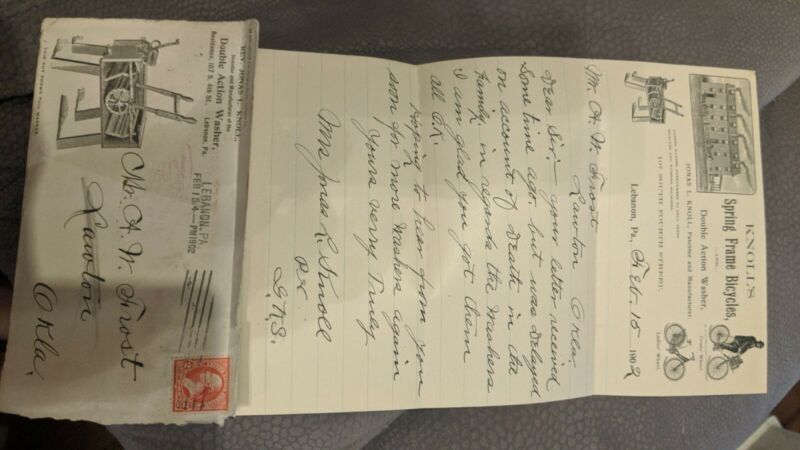 REV. JONAS L. KNOLL,
Inventor and Manufacturer of the
Double Action Washer.
Residence, 107 S. 4th St., Lebanon, Pa.
LEBANON, PA.
FEB 15 4-PM 1902
Mr. A. W. Frost
Lawton
Okla.
KNOLL'S
Spring Frame Bicycles,
Double Action Washer,
JONAS L. KNOLL, Patentee and Manufacturer,
107 SOUTH FOURTH STREET.
Lebanon, Pa., Feb. 15 1902
Mr. A. W. Frost
Lawton Okla
Dear Sir:- your letter received
some time ago, but was delayed
on account of Death in the
Family. in regards the Washers
I am glad you got them
all OK.
Hoping to hear from you
soon for more Washers again
Yours very Truly
Jonas L. Knoll